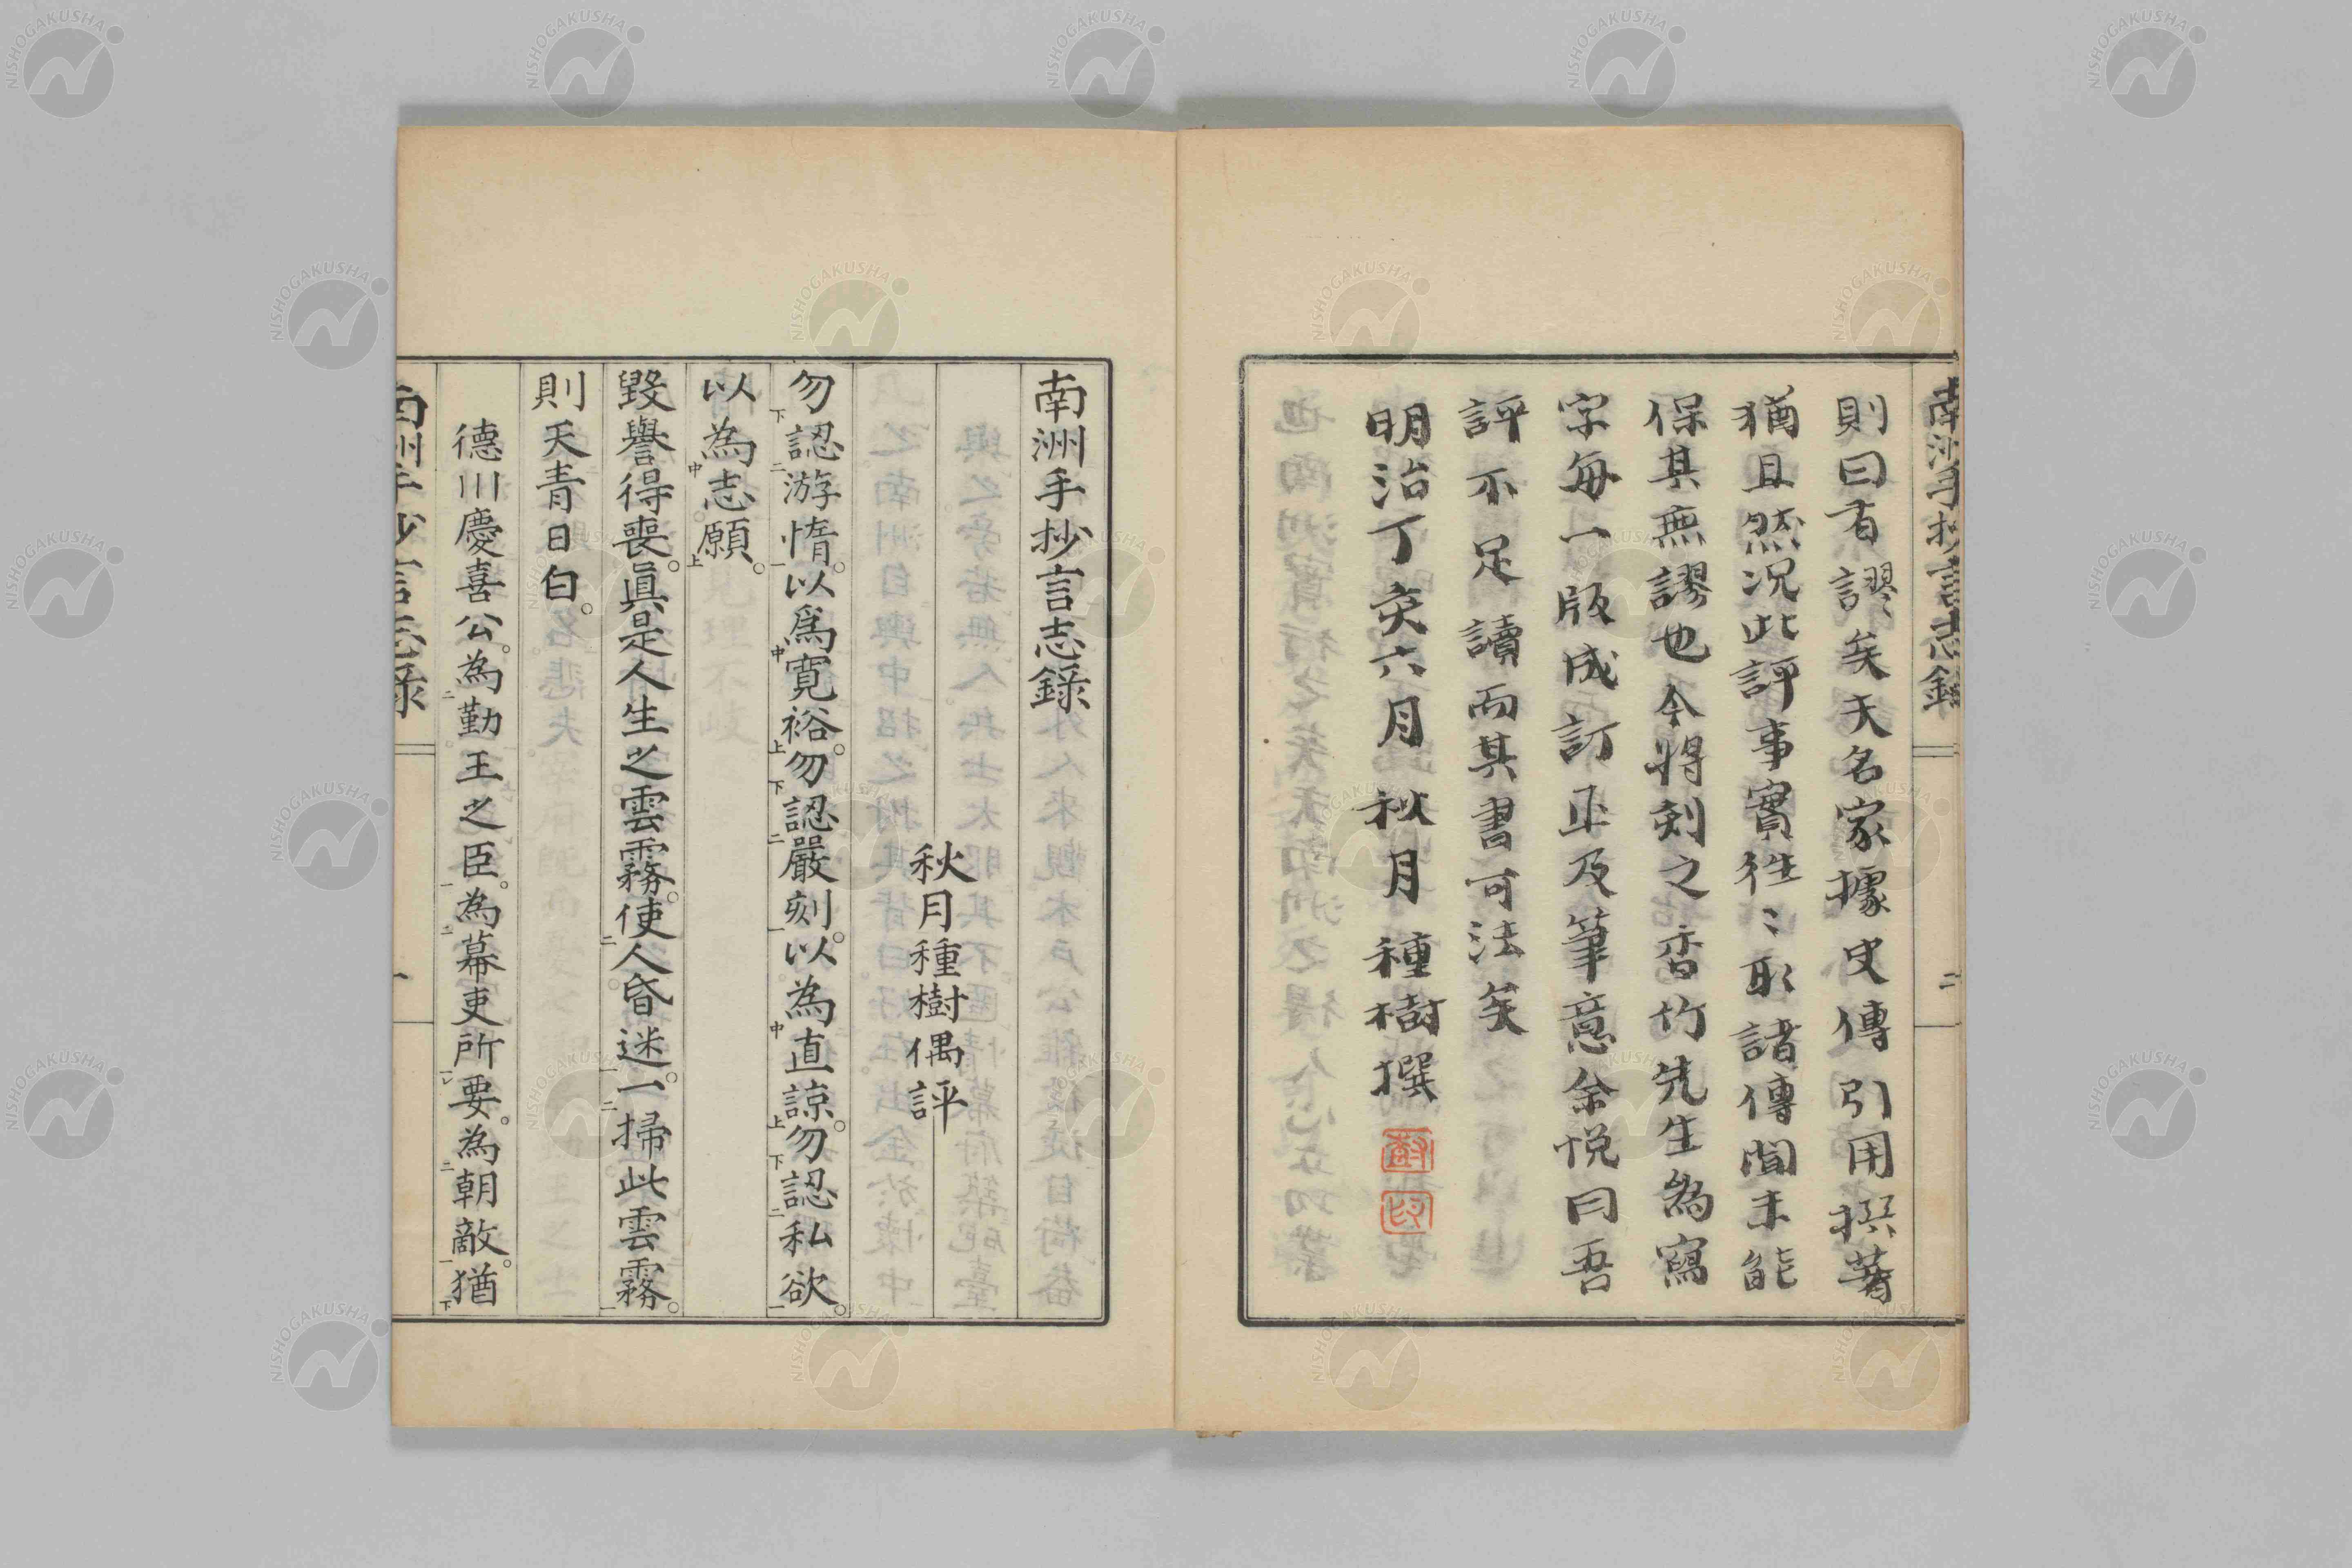 南洲手抄言志錄
二
則曰有謬矣夫名家據史傳引用撰著
猶且然況此評事實往〻取諸傳聞未能
保其無謬也今將刻之杏竹先生為寫
字每一版成訂正及筆意余悅曰吾
評不足讀而其書可法矣
明治丁亥六月秋月種樹撰
南洲手抄言志錄
秋月種樹偶評
勿認游惰。以爲寬裕。勿認嚴刻。以為直諒。勿認私欲。
以為志願。
毀譽得喪。眞是人生之雲霧。使人昏迷。一掃此雲霧。
則天青日白。
德川慶喜公。為勤王之臣。為幕吏所要。為朝敵。猶
南洲手抄言志錄
一
NISHOGAKUSHA